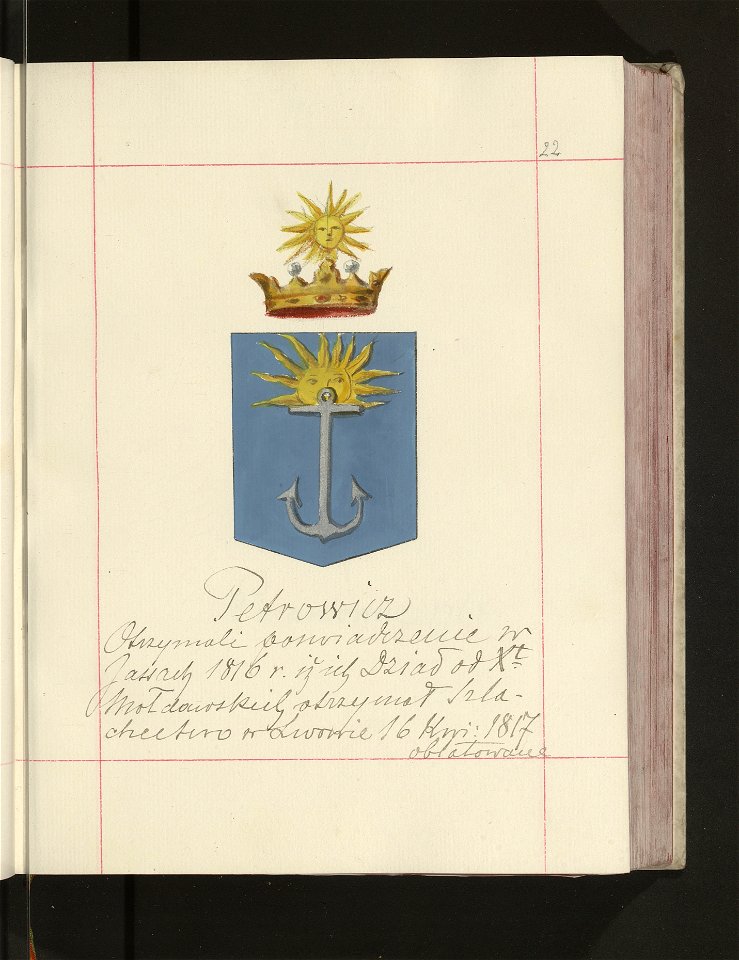 22
Petrowicz
Otrzymali poswiadczenie w
Jassach 1816 r. iż ich Dziad od Xt
Mołdawskich otrzymał Szla-
chectwo w Lwowie 16 Kwi: 1817
oblatowane